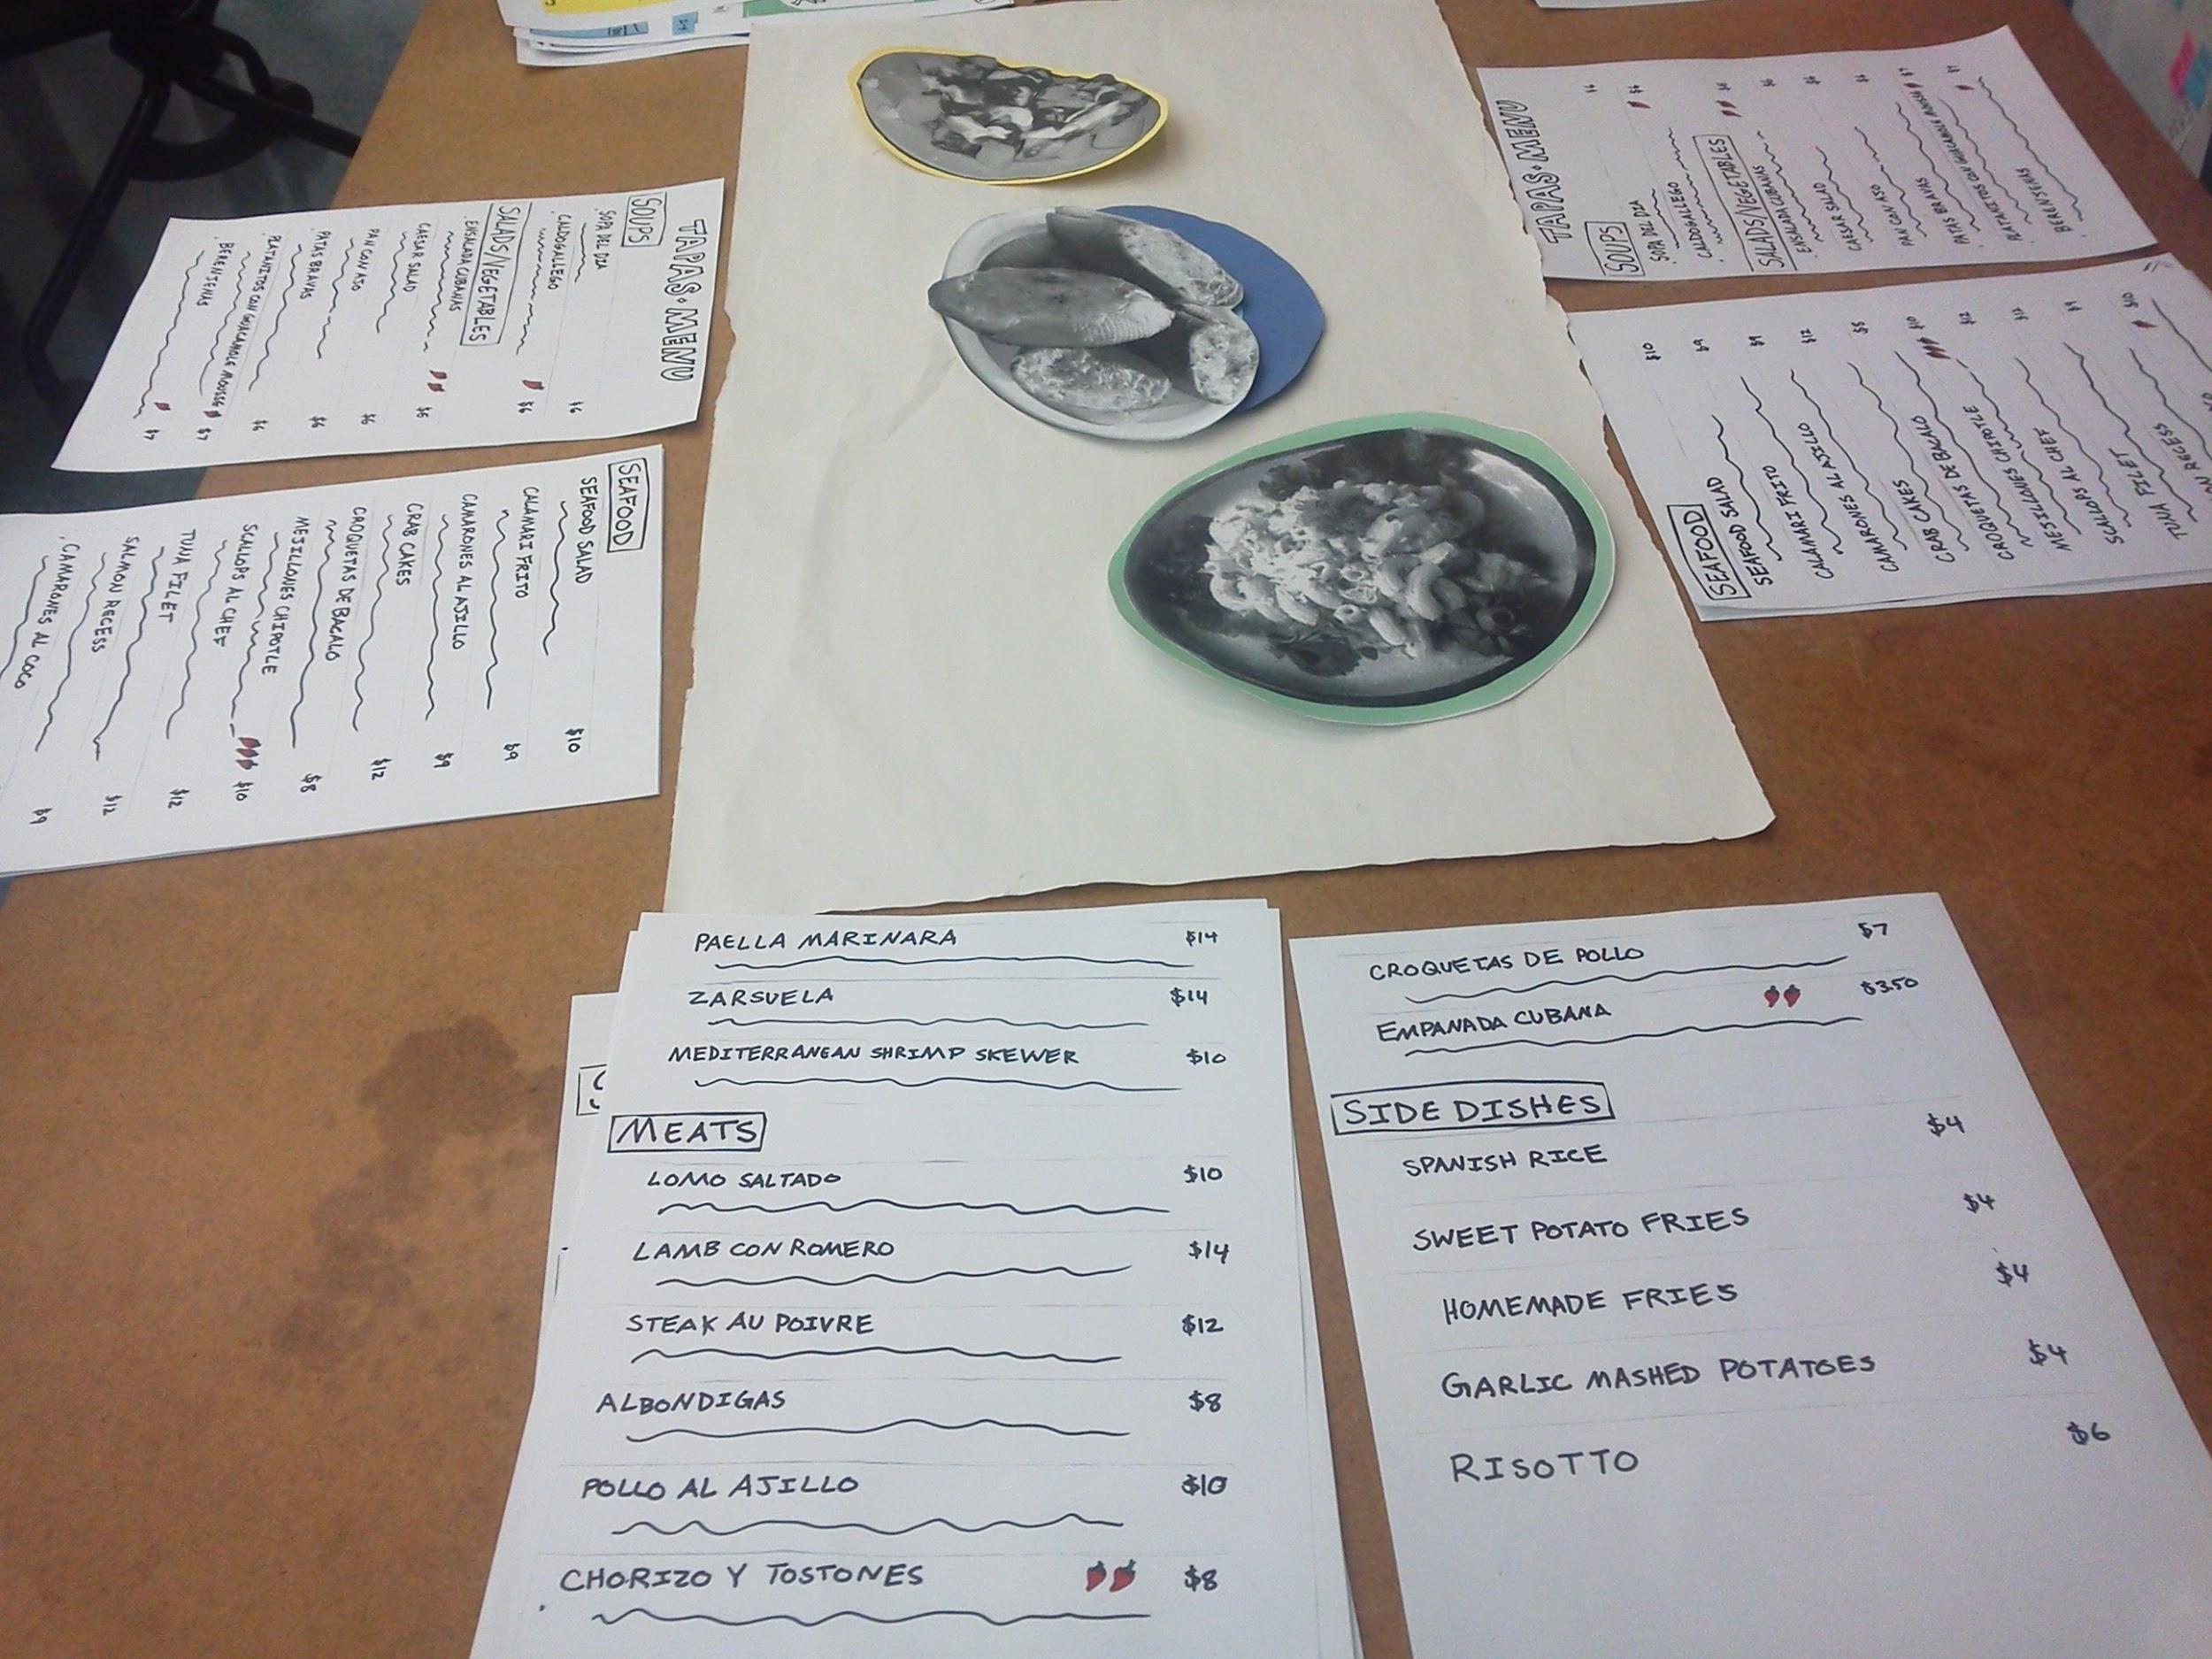 TAPAS·MENU
SOUPS
SOPA DEL DIA $6
CALDOGALLEGO $6
SALADS/VEGETABLES
ENSALADA CUBANAS $6
CAESAR SALAD $6
PAN CON AJO $6
PATAS BRAVAS $6
PLATANITOS CON GUACAMOLE MOUSSE $7
BERENJENAS $7
SEAFOOD
SEAFOOD SALAD $10
CALAMARI FRITO $9
CAMARONES AL AJILLO $9
CRAB CAKES $12
CROQUETAS DE BACALO $8
MEJILLONES CHIPOTLE $10
SCALLOPS AL CHEF $12
TUNA FILET $12
SALMON RECESS $9
CAMARONES AL COCO
TAPAS·MENU
SOUPS
SOPA DEL DIA $6
CALDOGALLEGO $6
SALADS/VEGETABLES
ENSALADA CUBANAS $6
CAESAR SALAD $6
PAN CON AJO $6
PATAS BRAVAS $6
PLATANITOS CON GUACAMOLE MOUSSE $7
BERENJENAS $7
SEAFOOD
SEAFOOD SALAD $10
CALAMARI FRITO $9
CAMARONES AL AJILLO $9
CAMARONES $12
CRAB CAKES $5
CROQUETAS DE BACALO $10
MEJILLONES CHIPOTLE $12
SCALLOPS AL CHEF $12
TUNA FILET $9
RECESS $10
PAELLA MARINARA $14
ZARSUELA $14
MEDITERRANEAN SHRIMP SKEWER $10
MEATS
LOMO SALTADO $10
LAMB CON ROMERO $14
STEAK AU POIVRE $12
ALBONDIGAS $8
POLLO AL AJILLO $10
CHORIZO Y TOSTONES $8
CROQUETAS DE POLLO $7
EMPANADA CUBANA $3.50
SIDE DISHES
SPANISH RICE $4
SWEET POTATO FRIES $4
HOMEMADE FRIES $4
GARLIC MASHED POTATOES $4
RISOTTO $6